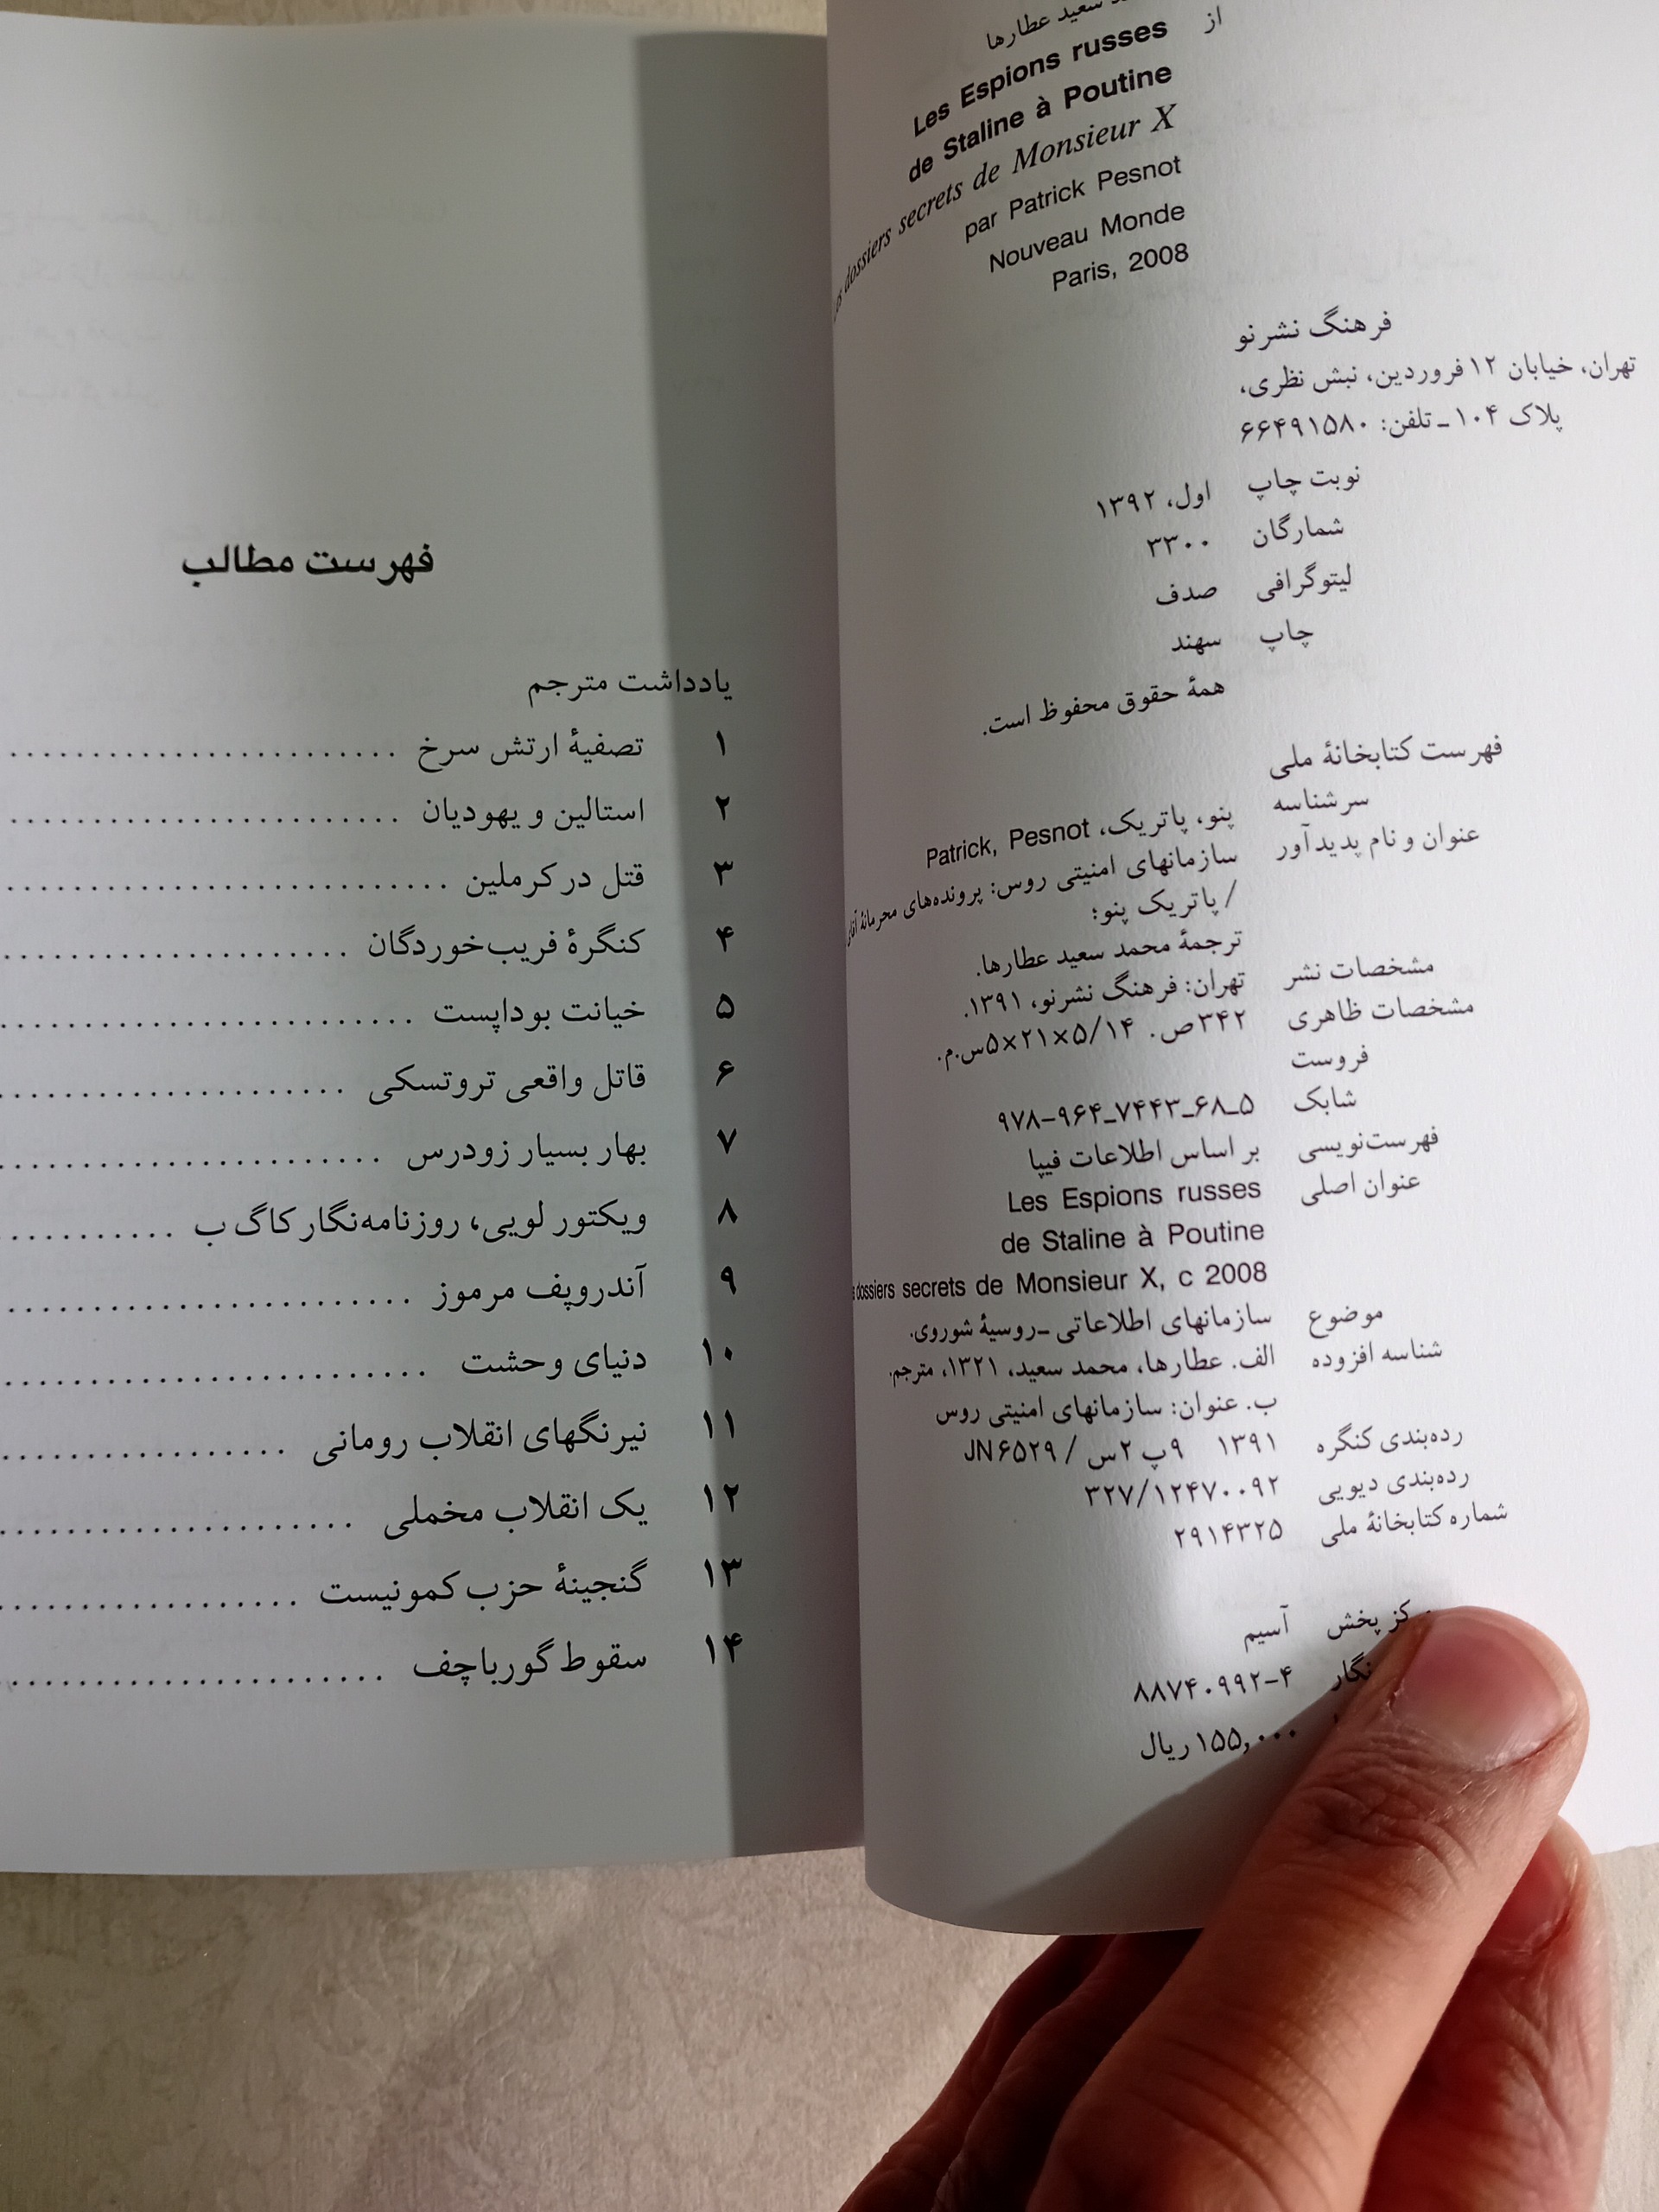 سعید عطارها
از
Les Espions russes
de Staline à Poutine
dossiers secrets de Monsieur X
par Patrick Pesnot
Nouveau Monde
Paris, 2008
فرهنگ نشر نو
تهران، خیابان ۱۲ فروردین، نبش نظری،
پلاک ۱۰۴ ـ تلفن: ۶۶۴۹۱۵۸۰
نوبت چاپ اول، ۱۳۹۲
شمارگان ۳۳۰۰
لیتوگرافی صدف
چاپ سهند
همهٔ حقوق محفوظ است.
فهرست کتابخانهٔ ملی
سرشناسه پنو، پاتریک، Patrick, Pesnot
عنوان و نام پدیدآور سازمانهای امنیتی روس: پرونده‌های محرمانهٔ آقای
/ پاتریک پنو؛
ترجمهٔ محمد سعید عطارها.
مشخصات نشر تهران: فرهنگ نشر نو، ۱۳۹۱.
مشخصات ظاهری ۳۴۲ ص. ۵×۲۱×۵/۱۴س.م.
فروست
شابک ۹۷۸-۹۶۴-۷۴۴۳-۶۸-۵
فهرست‌نویسی بر اساس اطلاعات فیپا
عنوان اصلی Les Espions russes
de Staline à Poutine
dossiers secrets de Monsieur X, c 2008
موضوع سازمانهای اطلاعاتی ـ روسیهٔ شوروی.
شناسه افزوده الف. عطارها، محمد سعید، ۱۳۲۱، مترجم.
ب. عنوان: سازمانهای امنیتی روس
رده‌بندی کنگره ۱۳۹۱ ۹پ ۲س / JN۶۵۲۹
رده‌بندی دیویی ۳۲۷/۱۲۴۷۰۰۹۲
شماره کتابخانهٔ ملی ۲۹۱۴۳۲۵
کز پخش آسیم
نگار ۸۸۷۴۰۹۹۲-۴
۱۵۵,۰۰۰ ریال
فهرست مطالب
یادداشت مترجم
۱ تصفیهٔ ارتش سرخ
۲ استالین و یهودیان
۳ قتل در کرملین
۴ کنگرهٔ فریب‌خوردگان
۵ خیانت بوداپست
۶ قاتل واقعی تروتسکی
۷ بهار بسیار زودرس
۸ ویکتور لویی، روزنامه‌نگار کا گ ب
۹ آندروپف مرموز
۱۰ دنیای وحشت
۱۱ نیرنگهای انقلاب رومانی
۱۲ یک انقلاب مخملی
۱۳ گنجینهٔ حزب کمونیست
۱۴ سقوط گورباچف